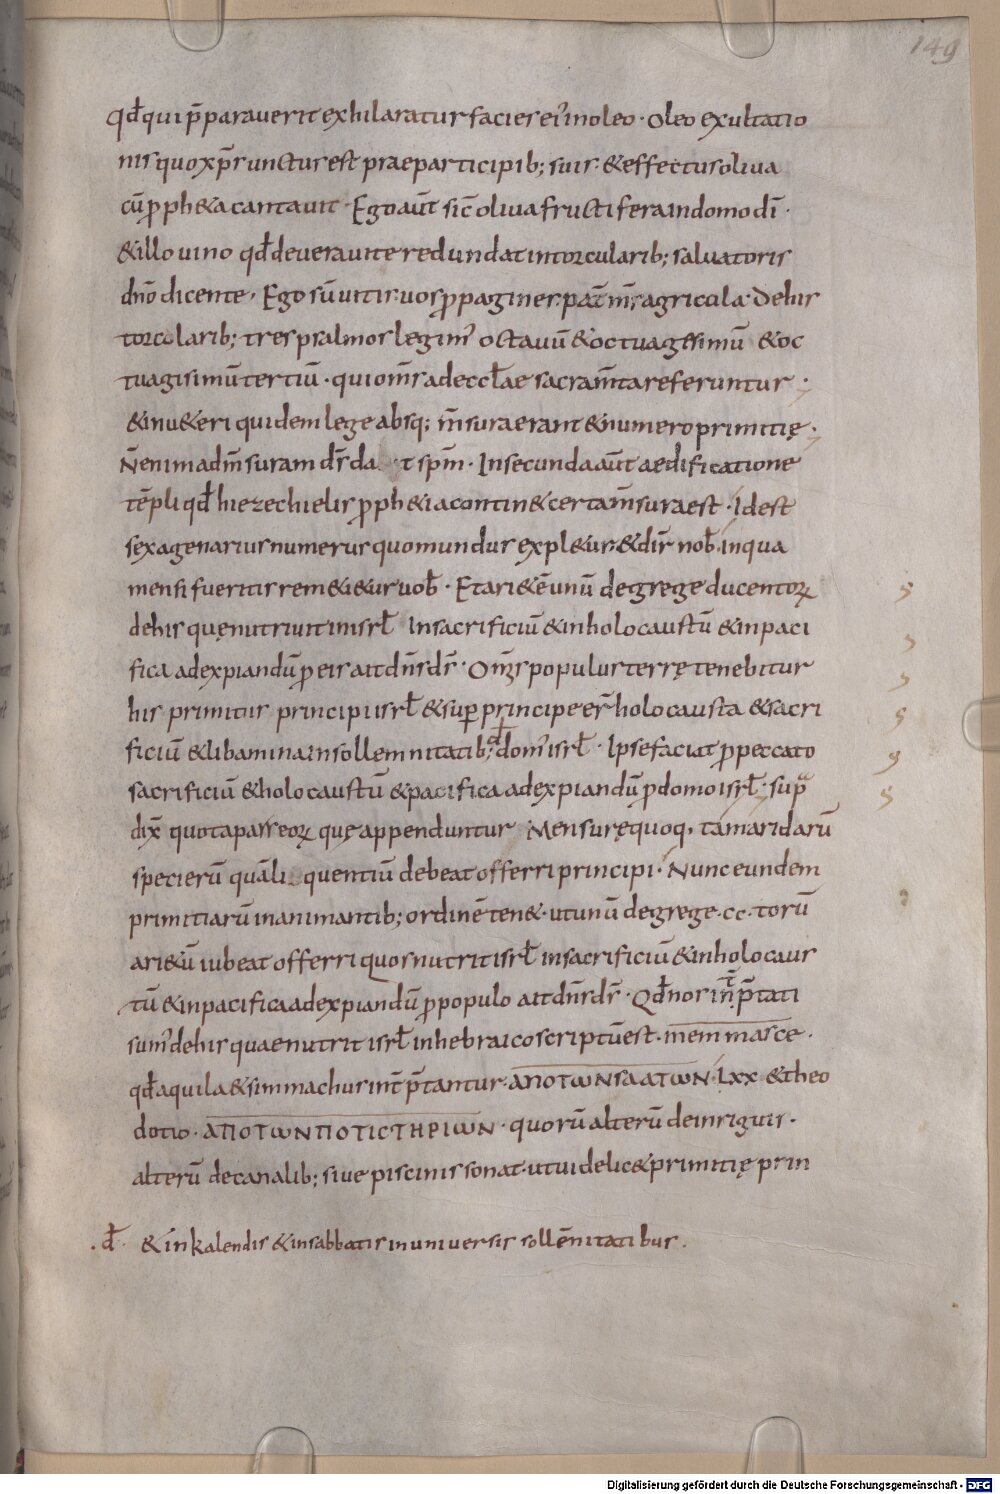 149
qđ qui p̄paraverit exhilaratur facies ei' in oleo · Oleo exultatio
nis quo xp̄s unctus est prae participib; suis · & effectus oliva
cū proph&a cantavit · Ego aūt sic̄ oliva fructifera in domo dī ·
& illo vino qđ de vera vite redundat in torcularib; salvatoris
dn̄o dicente · Ego sū vitis vos propagines pat̄ m̄s agricola · De his
torcolarib; tres psalmos legim' octavū & octuagessimū & oc
tuagisimū tertiū · qui om̄s ad eccłae sacram̄ta referuntur ·
& in v&eri quidem lege absq; m̄sura erant & numero primitię ·
N̄ enim ad m̄suram dr̄ da t sp̄m · In secunda aūt aedificatione
tēpli qđ hiezechielis proph&ia contin& certa m̄sura est · Id est
sexagenarius numerus quo mundus expl&ur · & dir̄ nob̄ in qua
mensi fueritis rem&i&ur vob̄ · Et ari&ē unū de grege ducentoꝝ
de his quę nutriunt in isrł In sacrificiū & in holocaustū & in paci
fica ad expiandū pro eis ait dn̄s ds̄ · Om̄s populus terrę tenebitur
his primitiis principi isrł & super principe er̄ holocausta & sacri
ficiū & libamina in sollemnitatib; đ dom' isrł · Ipse faciat pro peccato
sacrificiū & holocaustū & pacifica ad expiandū pro domo isrł · supra
dix̄ quota pars eoꝝ quę appenduntur Mensurę quoq, tam aridarū
specierū quā li quentiū debeat offerri principi · Nunc eundem
primitiarū in animantib; ordinē ten& · ut unū de grege · cc · torū
ari&ū iubeat offerri quos nutrit isrł in sacrificiū & in holocaus
tū & in pacifica ad expiandū pro populo ait dn̄s ds̄ · Qđ nos int̄p̄tati
sum' de his quae nutrit isrł in hebraico scriptū est · mem masce ·
qđ aquila & simmachus int̄p̄tantur · ΑΠΟΤωΝ sΑΑΤωΝ · Lxx & theo
dotio · ΑΠΟΤωΝ ΠΟΤΙCΤΗΡΙωΝ · quorū alterū de inriguis ·
alterū de canalib; sive piscinis sonat · ut videlic& primitię prin
· đ · & in kalendis & in sabbatis in universis sollēnitatibus ·
Digitalisierung gefördert durch die Deutsche Forschungsgemeinschaft - DFG